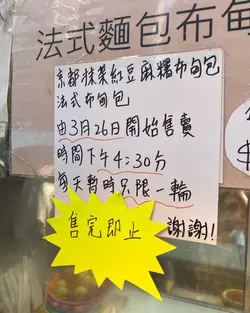 法式麵包布甸
京都抹茶紅豆麻糬布甸包
法式布甸包
由3月26日開始售賣
時間下午4:30分
每天暫時只限一輪
售完即止
謝謝!